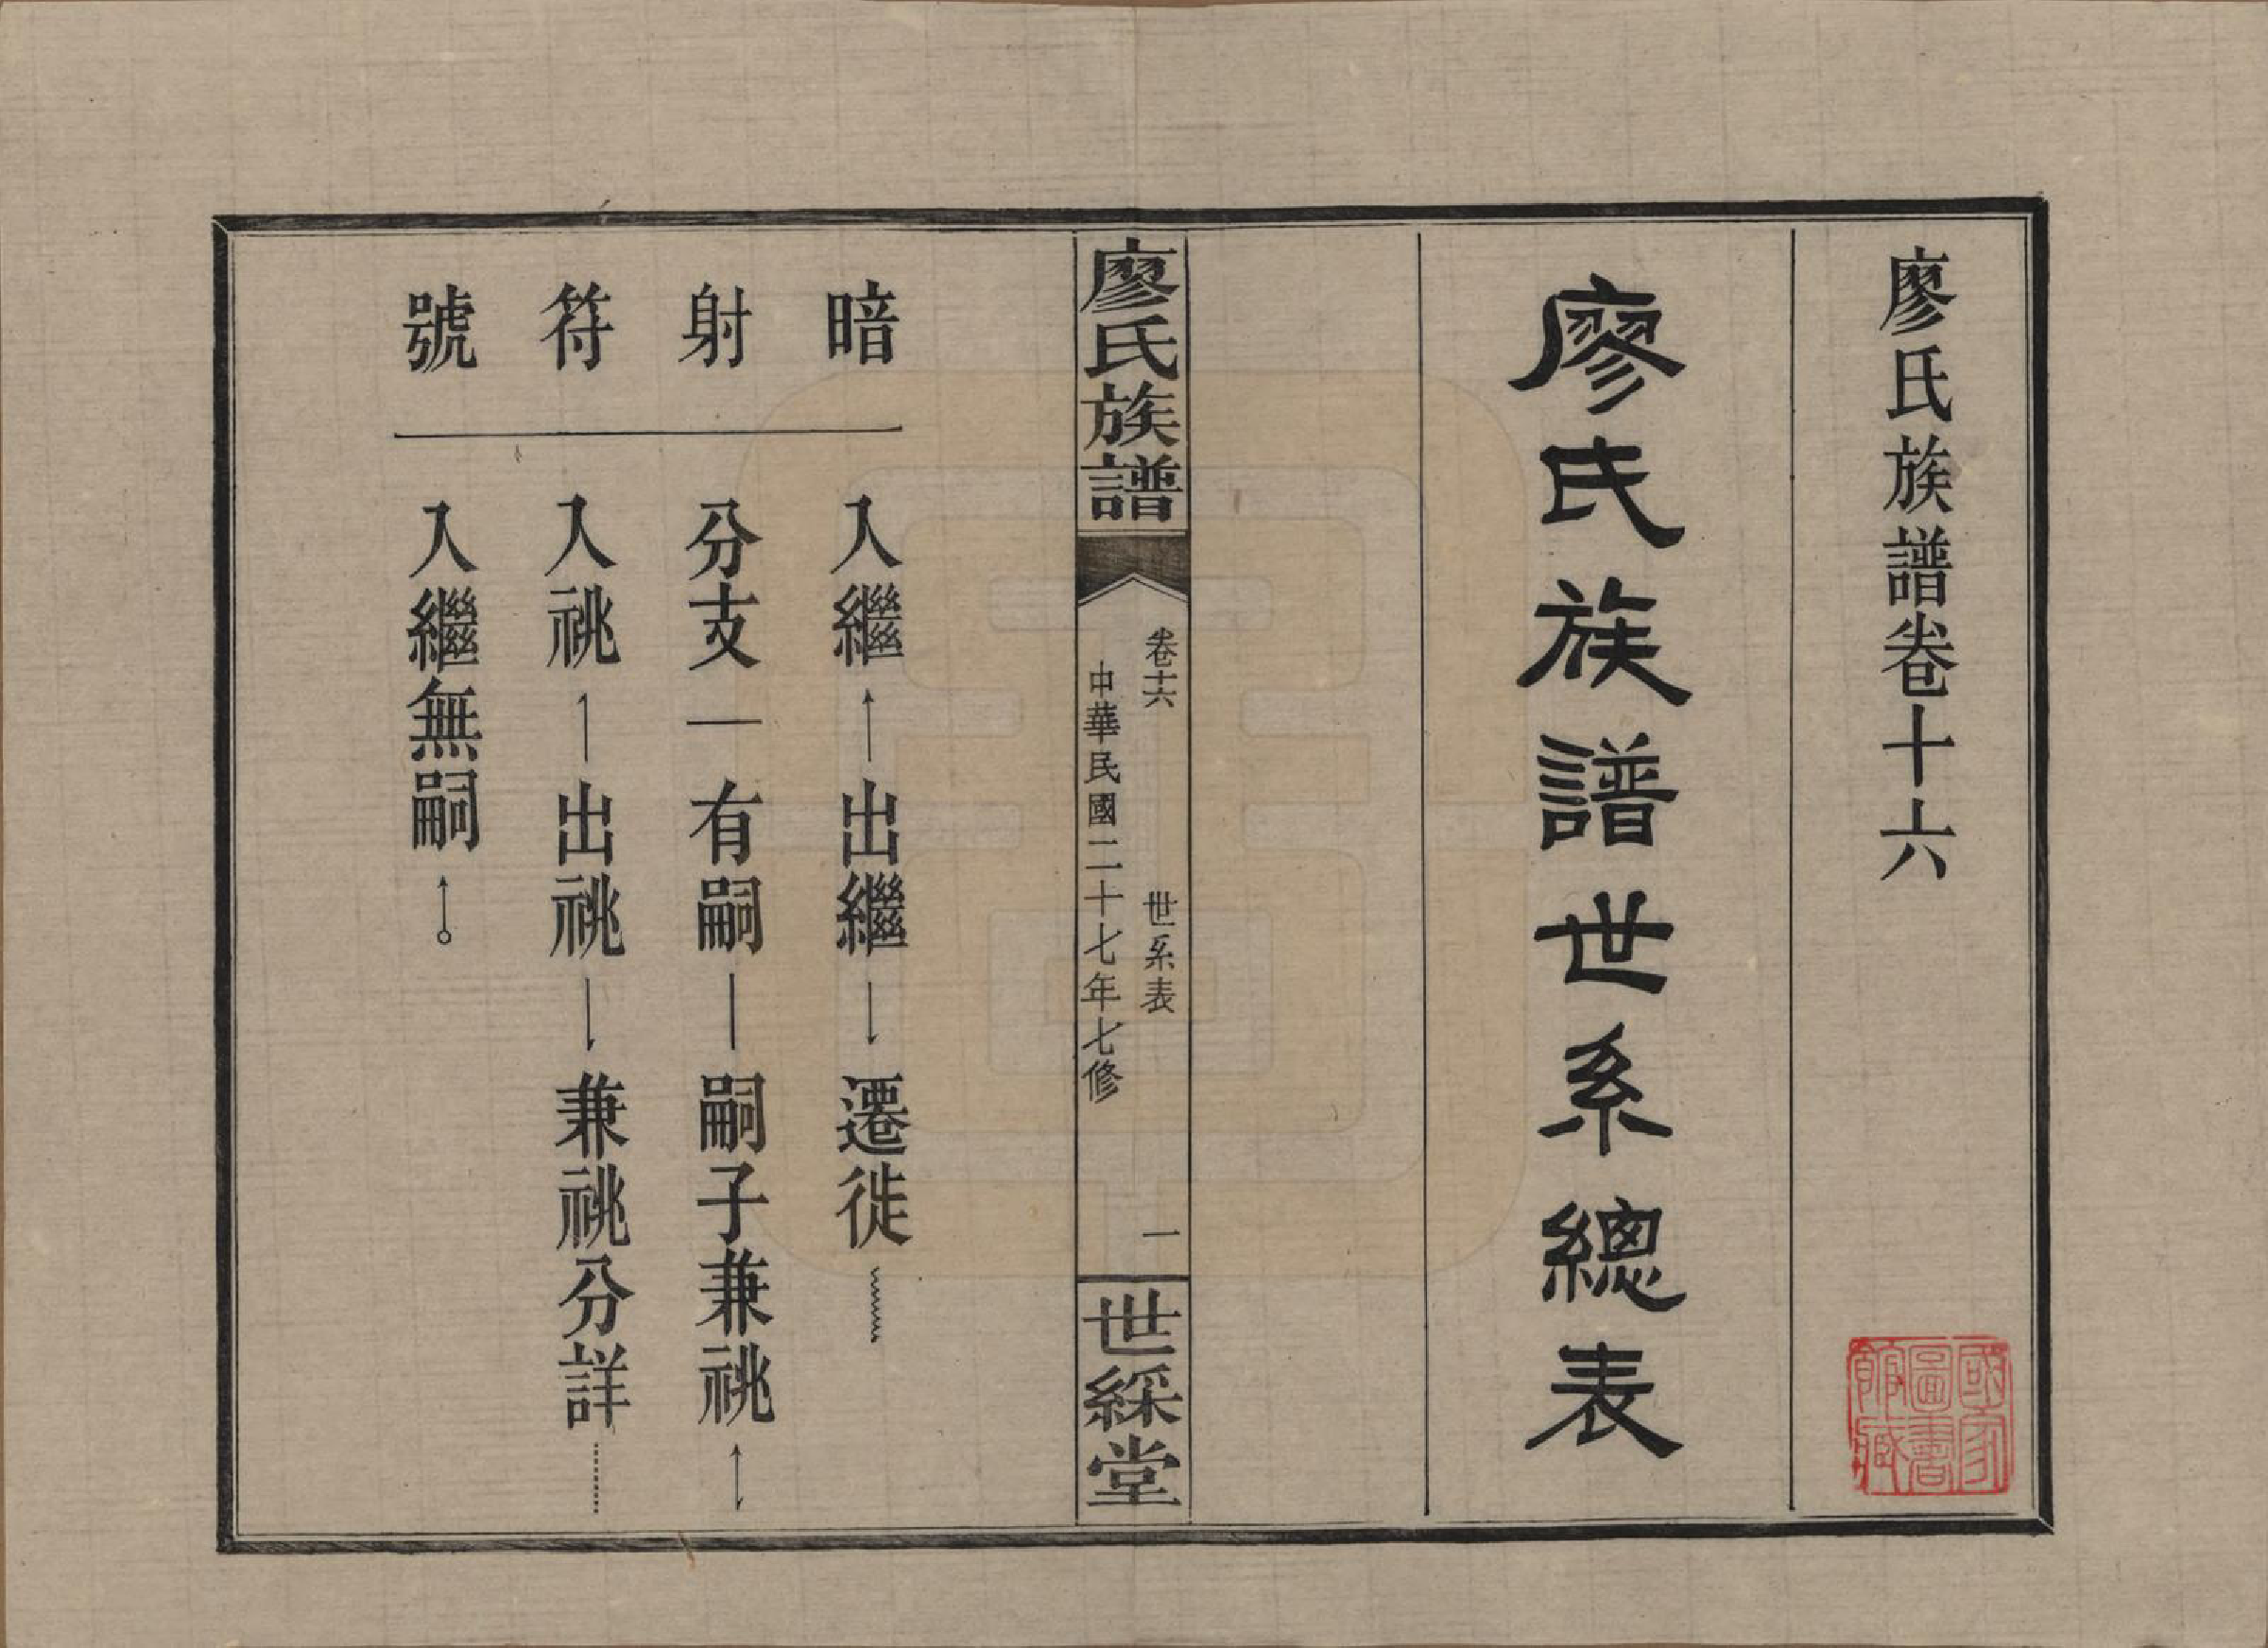 廖氏族譜卷十六
廖氏族譜世系總表
國家
圖書
館藏
廖氏族譜
卷十六 世系表 一
中華民國二十七年七修
世綵堂
暗射符號
入繼↑出繼↓遷徙
分支—有嗣—嗣子兼祧↕
入祧↑出祧↓兼祧分詳
入繼無嗣